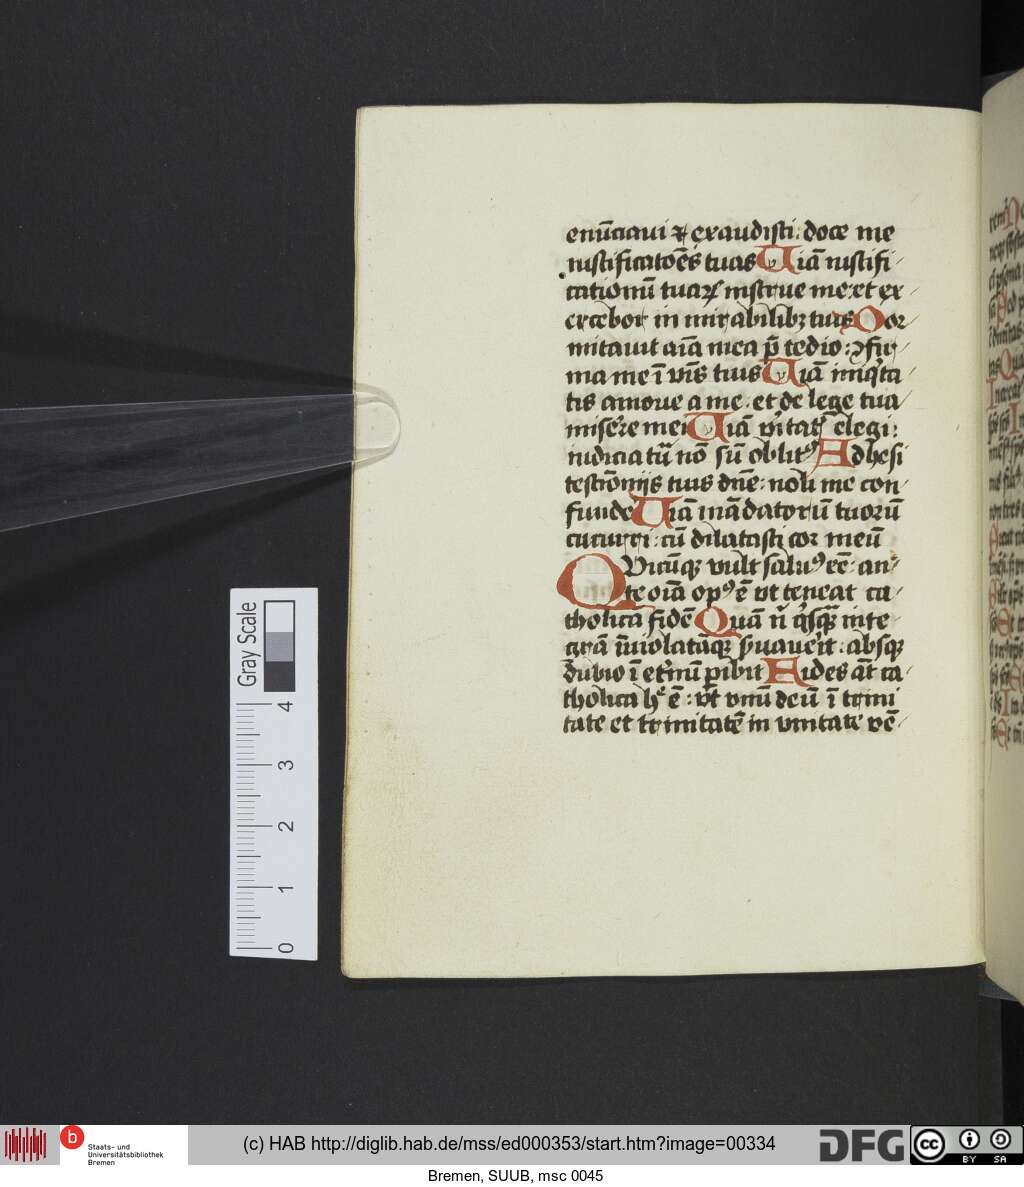 enūciaui ⁊ exaudisti: doce me
iustificatōēs tuas Uiā iustifi/
cationū tuaꝝ instrue me: et ex
ercebor in mirabilibꝫ tuis Dor/
mitauit aīa mea p̄ tedio: ꝯfir/
ma me ī v̄bis tuis Uiā iniq̇ta/
tis amoue a me: et de lege tua
miser̄e mei Uiā v̄itatꝭ elegi:
iudicia tū nō sū oblitꝰ Adhesi
testiōnijs tuis dn̄e: noli me con/
funde Uiā mādatorū tuorū
cucurri: cū dilatasti cor meū
QUicūqꝫ vult saluꝰ eē: an/
te oīa opꝰ ē vt teneat ca/
tholicā fidē Quā n̄ q̇sqꝫ inte/
grā īuiolatāqꝫ s̄uauer̄it: absqꝫ
dubio ī et̄nū ꝑibit Fides āt ca/
tholica h̄ ē: vt vnū deū ī trini
tate et trinitatē in vnitate vē/
Gray Scale
4
3
2
1
0
b
Staats- und
Universitätsbibliothek
Bremen
(c) HAB http://diglib.hab.de/mss/ed000353/start.htm?image=00334
DFG
cc
BY SA
Bremen, SUUB, msc 0045